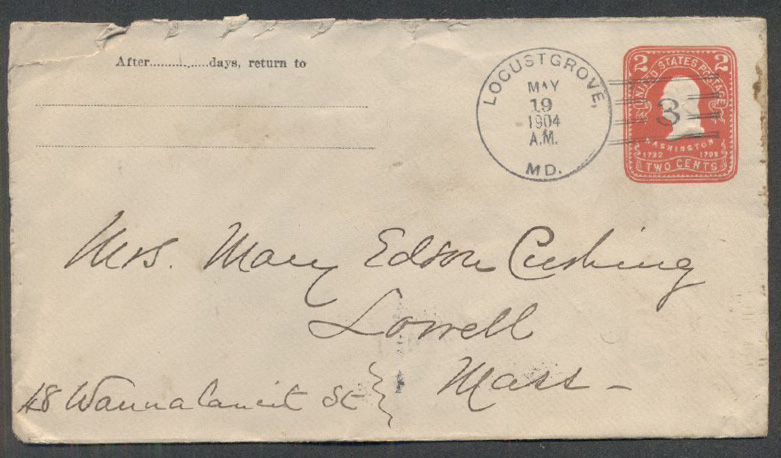 After..............days, return to
LOCUSTGROVE,
MAY
19
1904
A.M.
MD.
2 2
UNITED STATES POSTAGE
3
WASHINGTON
1732 1799
TWO CENTS
Mrs. Mary Edson Cushing
Lowell
Mass -
48 Wannalancit St